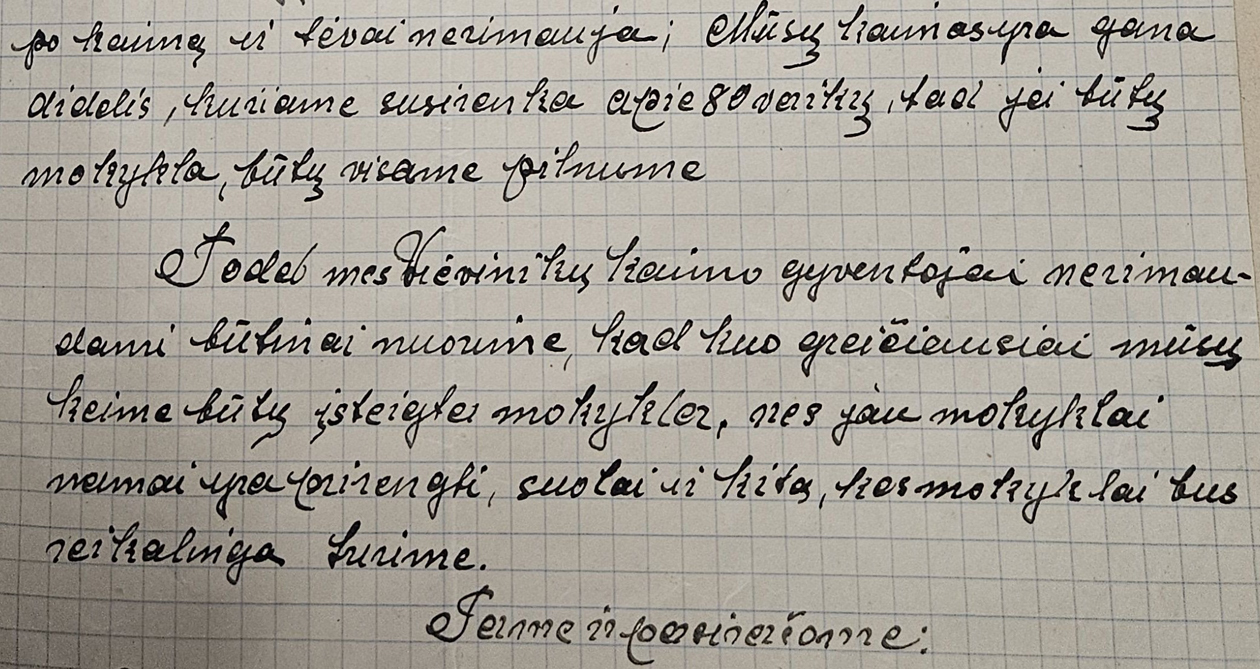 po kaimą ir tėvai nerimauja; Mūsų kaimas yra gana
didelis, kuriame susirenka apie 80 vaikų, tad jei būtų
mokykla, būtų visame pilnume
Todėl mes Vievinikų kaimo gyventojai nerimau-
dami būtinai nuorime, kad kuo greičiausiai mūsų
kaime būtų įsteigta mokykla, nes jau mokyklai
namai yra pirengti, suolai ir kita, kas mokyklai bus
reikalinga turime.
Tame ir pasirašome: